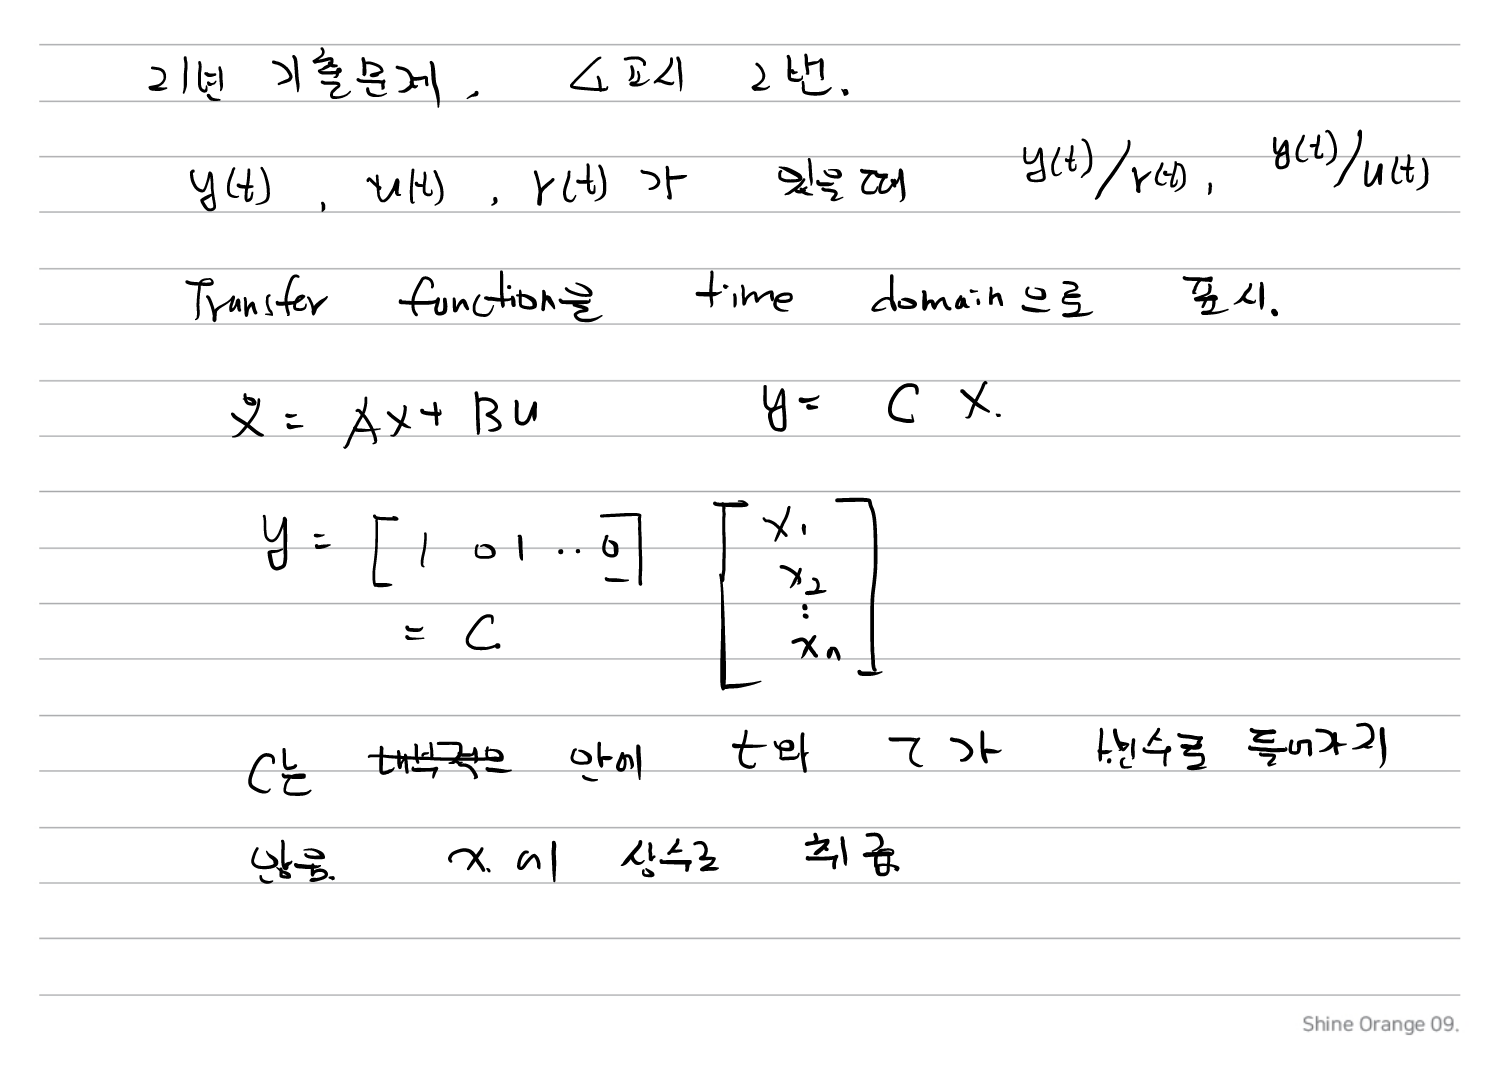 21년 기출문제, 4교시 2번.
y(t), u(t), r(t)가 있을때 y(t)/r(t), y(t)/u(t)
Transfer function을 time domain으로 표시.
ẋ = Ax + Bu y = C X.
y = [1 0 1 ‥ 0] [x₁ x₂ ⋮ xₙ]
= C
C는 안에 t와 τ가 변수로 들어가지
않음. x.이 상수로 취급.
Shine Orange 09.